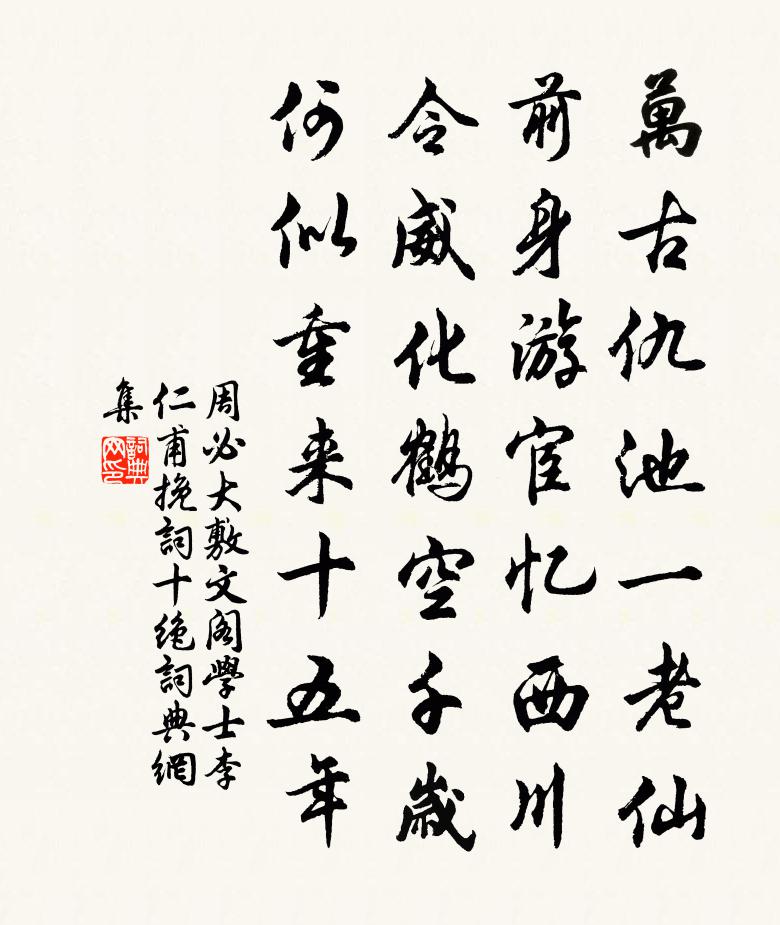 萬古仇池一老仙
前身游宦忆西川
令威化鶴空千歳
何似重来十五年
周必大敷文阁學士李
仁甫挽詞十绝詞典網
集
詞典
网印